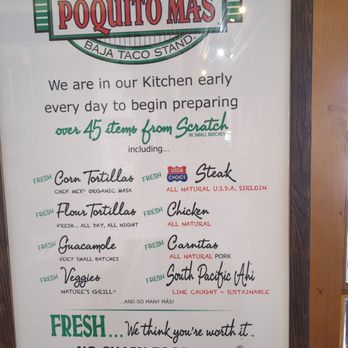 POQUITO MÁS
BAJA TACO STAND
We are in our Kitchen early
every day to begin preparing
over 45 items from Scratch
IN SMALL BATCHES
including...
FRESH Corn Tortillas
CHEF MEX® ORGANIC MASA
FRESH Flour Tortillas
FRESH... ALL DAY, ALL NIGHT
FRESH Guacamole
VERY SMALL BATCHES
FRESH Veggies
NATURE'S GRILL
FRESH USDA CHOICE Steak
ALL NATURAL U.S.D.A. SIRLOIN
FRESH Chicken
ALL NATURAL
FRESH Carnitas
ALL NATURAL PORK
FRESH South Pacific Ahi
LINE CAUGHT – SUSTAINABLE
...AND SO MANY MÁS!
FRESH... We think you're worth it...